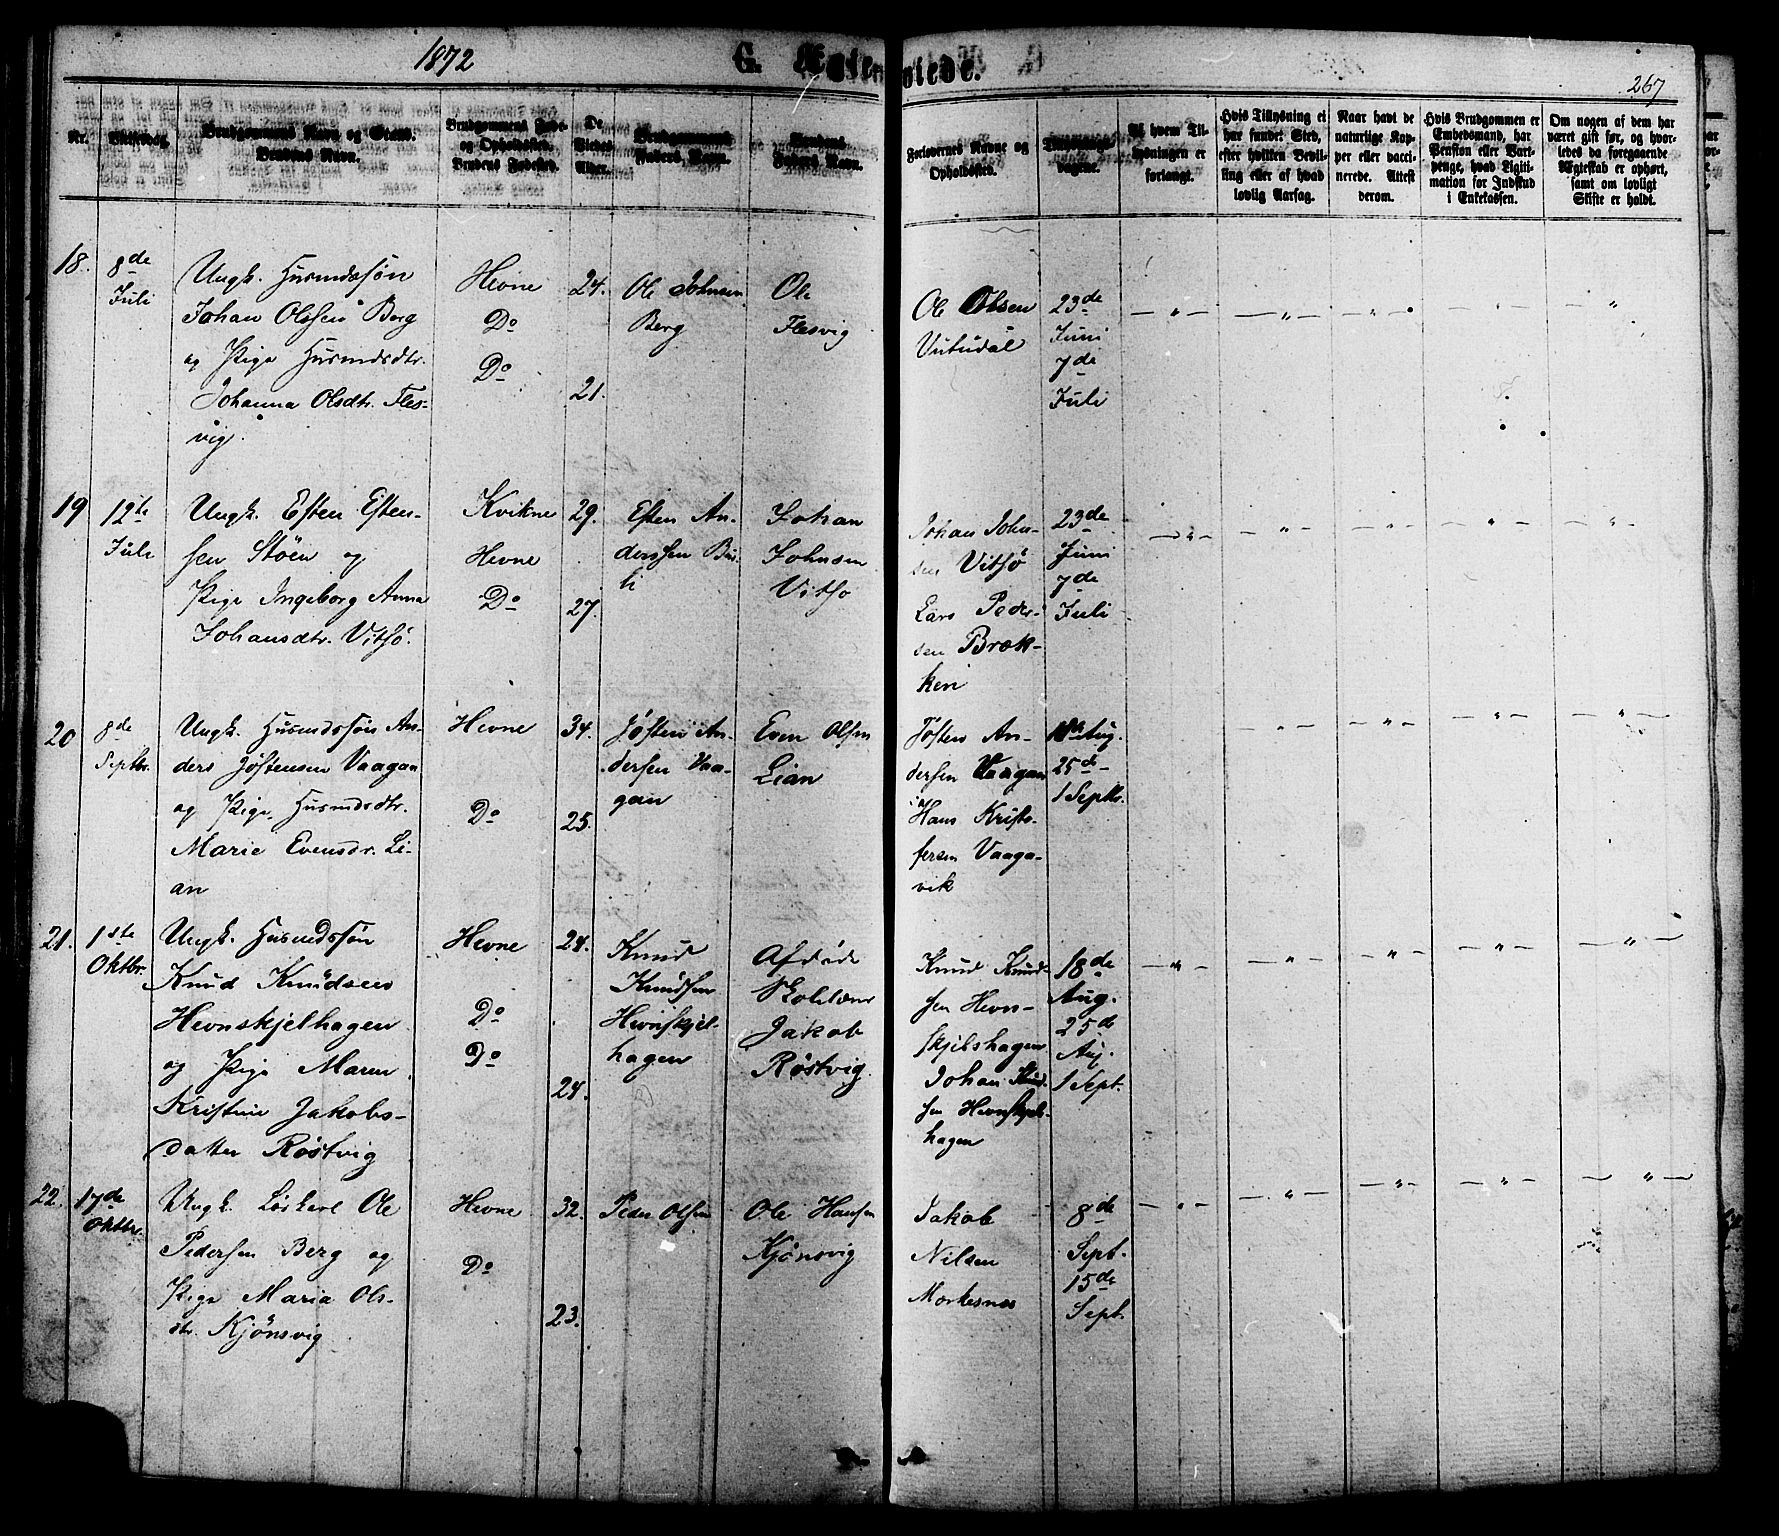 1872
G. Ægteviede.
267
Nr.
Vielsesdag.
Brudgommens Navn og Stand.
Brudens Navn.
Brudgommens Føde-
og Opholdssted.
Brudens Fødested.
De
Viedes
Alder.
Brudgommens
Faders Navn.
Brudens
Faders Navn.
Forlovernes Navne og
Opholdssted.
Tillysnings-
dagene.
Af hvem Til-
lysningen er
forlangt.
Hvis Tillysning ei
har fundet Sted,
efter hvilken Bevil-
ling eller af hvad
lovlig Aarsag.
Naar havt de
naturlige Kop-
per eller vacci-
nerede. Attest
derom.
Hvis Brudgommen er
Embedsmand, har
Pension eller Vart-
penge, hvad Ligiti-
mation for Indskud
i Enkekassen.
Om nogen af dem har
været gift før, og hvor-
ledes da foregaaende
Ægteskab er ophørt,
samt om lovligt
Skifte er holdt.
18.
8de
Juli
Ungk. Husmdssøn
Johan Olssen Berg
og Pige Husmdsdtr.
Johanna Olsdtr. Fles-
vig.
Hevne
Do
Do
24.
21.
Ole Johnsen
Berg
Ole
Flesvig
Ole Olsen
Vutudal
23de
Juni
7de
Juli
19
12te
Juli
Ungk. Esten Esten-
sen Støen og
Pige Ingeborg Anna
Johansdtr. Vitsø.
Kvikne
Hevne
Do
29.
27.
Esten An-
derssen
li
Johan
Johnsen
Vitsø
Johan John-
sen Vitsø
Lars Peder-
sen Bræk-
ken
23de
Juni
7de
Juli
20
8de
Septbr.
Ungk. Husmdssøn An-
ders Jøstensen Vaagan
og Pige, Husmdsdtr.
Marie Evensdr. Li-
an
Hevne
Do
34.
25.
Jøsten An-
dersen Vaa-
gan
Even Olsen
Lian
Jøsten An-
dersen Vaagan
og
Hans Kristo-
fersen Vaaga-
vik
18de Aug.
25de
1 Septbr.
21.
1ste
Oktbr.
Ungk. Husmdssøn
Knud Knudsen
Hevnskjelhagen
og Pige Maren
Kristine Jakobs-
datter Røstvig
Hevne
Do
Do
24.
24.
Knud
Knudsen
Hevnskjel-
hagen
Afdøde
Jakob
Røstvig.
Knud Knud-
sen Hevn-
skjelshagen
Johan Knud-
sen Hevnskjels-
hagen
18de
Aug.
25de
Aug.
1 Sept.
22.
17de
Oktbr.
Ungk. Løskarl Ole
Pedersen Berg og
Pige Maria Ols-
dtr. Kjønsvig
Hevne
Do
32.
23.
Peder Olsen
Ole Hansen
Kjønsvig
Jakob
Nilsen
Morkesnes
8de
Sept.
15de
Sept.